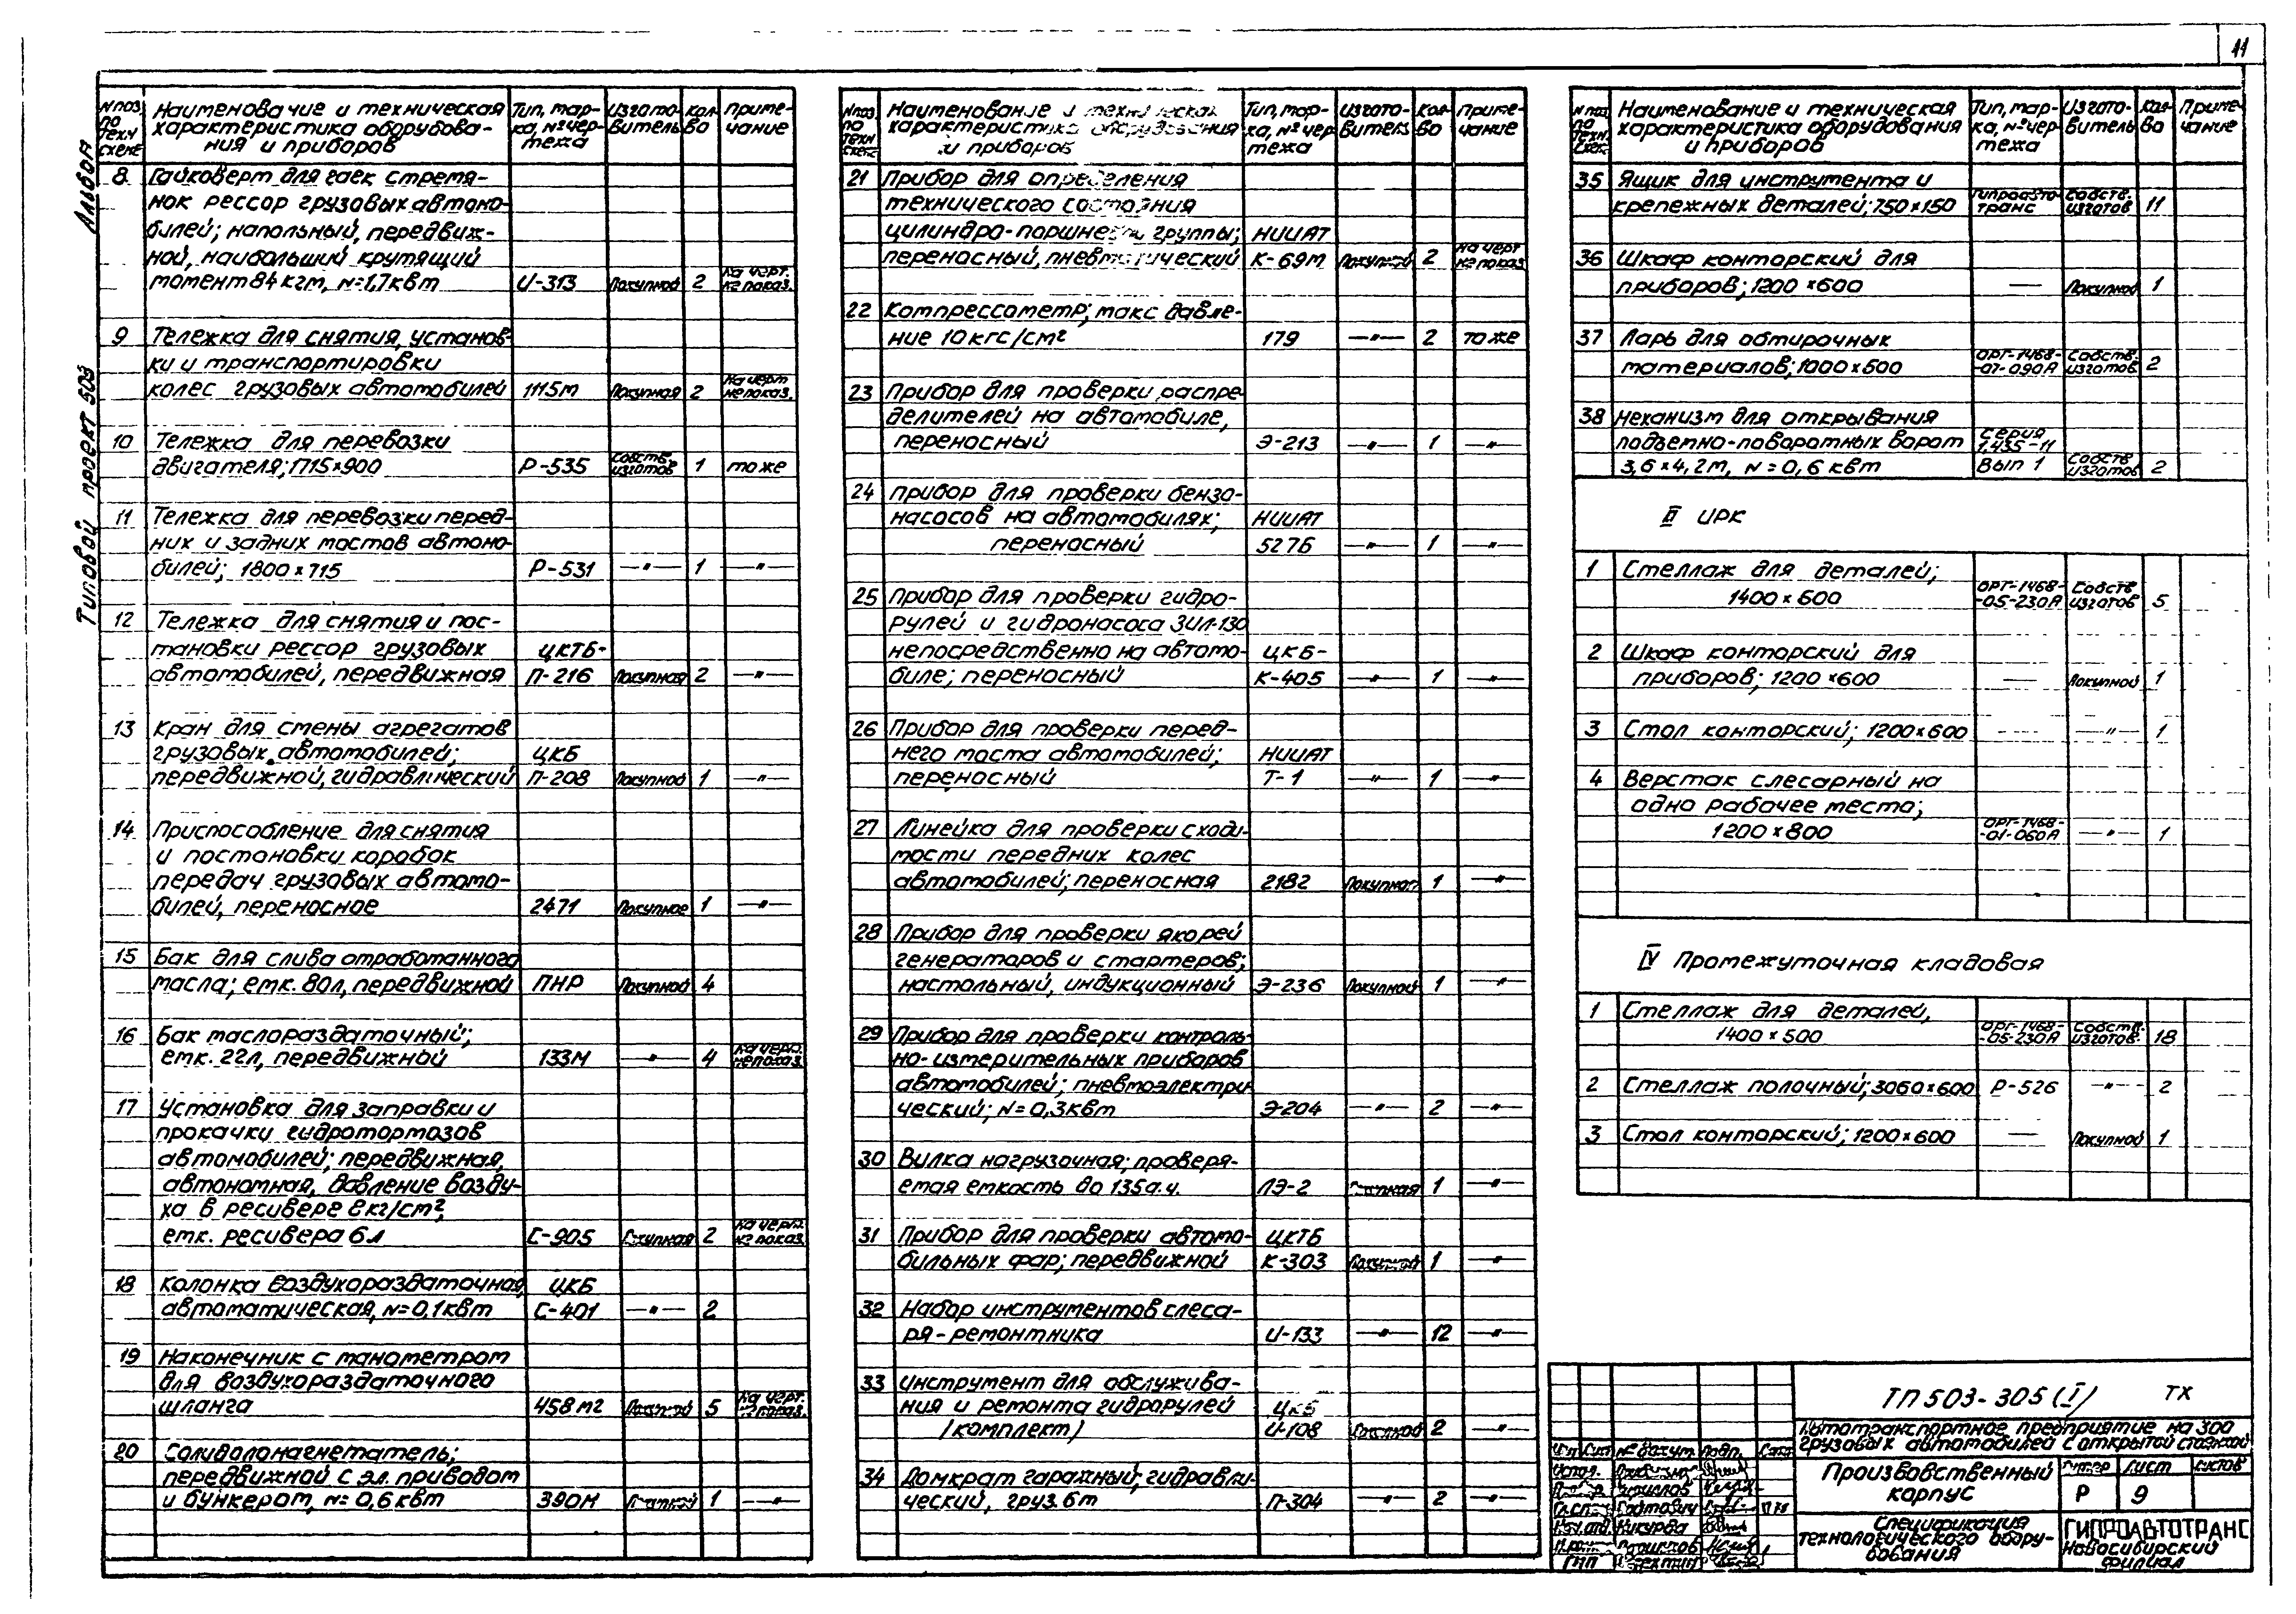 11
Альбом
Типовой проект 503
№ поз. по техн. схеме | Наименование и техническая характеристика оборудования и приборов | Тип, марка, № чертежа | Изготовитель | Кол-во | Примечание
8 Гайковерт для гаек стремя-
нок рессор грузовых автомо-
билей; напольный, передвиж-
ной, наибольший крутящий
момент 84 кгм, N=1,7 квт И-313 Покупной 2 на черт. не показ.
9 Тележка для снятия, установ-
ки и транспортировки
колес грузовых автомобилей 1115М Покупная 2 на черт. не показ.
10 Тележка для перевозки
двигателя; 1715×900 Р-535 Собств. изготов 1 то же
11 Тележка для перевозки перед-
них и задних мостов автомо-
билей; 1800×715 Р-531 —"— 1 —"—
12 Тележка для снятия и пос-
тановки рессор грузовых ЦКТБ-
автомобилей, передвижная П-216 Покупная 2 —"—
13 Кран для смены агрегатов
грузовых автомобилей; ЦКБ
передвижной, гидравлический П-208 Покупной 1 —"—
14 Приспособление для снятия
и постановки коробок
передач грузовых автомо-
билей, переносное 2471 Покупное 1 —"—
15 Бак для слива отработанного
масла; емк. 80л, передвижной ПНР Покупной 4
16 Бак маслораздаточный;
емк. 22л, передвижной 133М —"— 4 на черт. не показ.
17 Установка для заправки и
прокачки гидротормозов
автомобилей; передвижная,
автономная, давление возду-
ха в ресивере 8 кг/см²,
емк. ресивера 6 л С-905 Покупная 2 на черт. не показ.
18 Колонка воздухораздаточная, ЦКБ
автоматическая, N=0,1 квт С-401 —"— 2
19 Наконечник с манометром
для воздухораздаточного
шланга 458М2 Покупной 5 на черт. не показ.
20 Солидолонагнетатель;
передвижной с эл. приводом
и бункером, N=0,6 квт 390М Покупной 1 —"—
№ поз. по техн. схеме | Наименование и техническая характеристика оборудования и приборов | Тип, марка, № чертежа | Изготовитель | Кол-во | Примечание
21 Прибор для определения
технического состояния
цилиндро-поршневой группы; НИИАТ
переносный, пневматический К-69М Покупной 2 на черт. не показ
22 Компрессометр; макс давле-
ние 10 кгс/см² 179 —"— 2 то же
23 Прибор для проверки распре-
делителей на автомобиле,
переносный Э-213 —"— 1 —"—
24 Прибор для проверки бензо-
насосов на автомобилях; НИИАТ
переносный 527Б —"— 1 —"—
25 Прибор для проверки гидро-
рулей и гидронасоса ЗИЛ-130
непосредственно на автомо- ЦКБ-
биле; переносный К-405 —"— 1 —"—
26 Прибор для проверки перед-
него моста автомобилей; НИИАТ
переносный Т-1 —"— 1 —"—
27 Линейка для проверки сходи-
мости передних колес
автомобилей; переносная 2182 Покупная 1 —"—
28 Прибор для проверки якорей
генераторов и стартеров;
настольный, индукционный Э-236 Покупной 1 —"—
29 Прибор для проверки контроль-
но-измерительных приборов
автомобилей; пневмоэлектри-
ческий; N=0,3 квт Э-204 —"— 2 —"—
30 Вилка нагрузочная; проверя-
емая емкость до 135 а.ч. ЛЭ-2 Покупная 1 —"—
31 Прибор для проверки автомо- ЦКТБ
бильных фар; передвижной К-303 Покупной 1 —"—
32 Набор инструментов слеса-
ря-ремонтника И-133 —"— 12 —"—
33 Инструмент для обслужива-
ния и ремонта гидрорулей ЦКБ
(комплект) И-108 Покупной 2 —"—
34 Домкрат гаражный; гидравли-
ческий, груз. 6т П-304 —"— 2 —"—
№ поз. по техн. схеме | Наименование и техническая характеристика оборудования и приборов | Тип, марка, № чертежа | Изготовитель | Кол-во | Примечание
35 Ящик для инструмента и
крепежных деталей; 750×150 Гипроавто-транс Собств. изготов 11
36 Шкаф конторский для
приборов; 1200×600 — Покупной 1
37 Ларь для обтирочных
материалов; 1000×500 ОРГ-1468-07-090А Собств. изготов. 2
38 Механизм для открывания
подъемно-поворотных ворот Серия 1.435-11
3,6×4,2м, N=0,6 квт Вып 1 Собств изготов 2
II ИРК
1 Стеллаж для деталей;
1400×600 ОРГ-1468-05-230А Собств изготов 5
2 Шкаф конторский для
приборов; 1200×600 — Покупной 1
3 Стол конторский; 1200×600 — —"— 1
4 Верстак слесарный на
одно рабочее место;
1200×800 ОРГ-1468-01-060А —"— 1
IV Промежуточная кладовая
1 Стеллаж для деталей,
1400×500 ОРГ-1468-05-230А Собств. изготов. 18
2 Стеллаж полочный; 3060×600 Р-526 —"— 2
3 Стол конторский; 1200×600 — Покупной 1
ТП 503-305 (I) ТХ
Автотранспортное предприятие на 300
грузовых автомобилей с открытой стоянкой
Производственный
корпус
Литер Лист Листов
Р 9
Спецификация
технологического обору-
дования
ГИПРОАВТОТРАНС
Новосибирский
филиал
№ докум. Подп.
Кикурва
ГИП